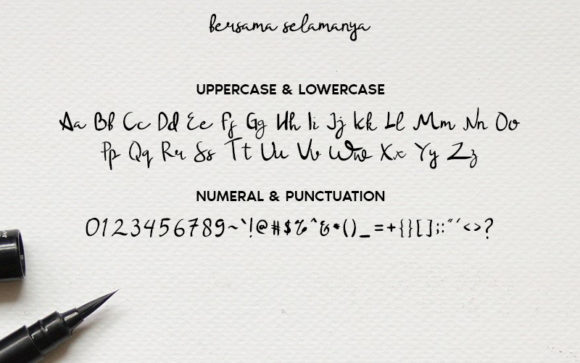 bersama selamanya
UPPERCASE & LOWERCASE
Aa Bb Cc Dd Ee Ff Gg Hh Ii Jj Kk Ll Mm Nn Oo
Pp Qq Rr Ss Tt Uu Vv Ww Xx Yy Zz
NUMERAL & PUNCTUATION
0123456789~`!@#$%^&*()_=+{}[];:"'<>?